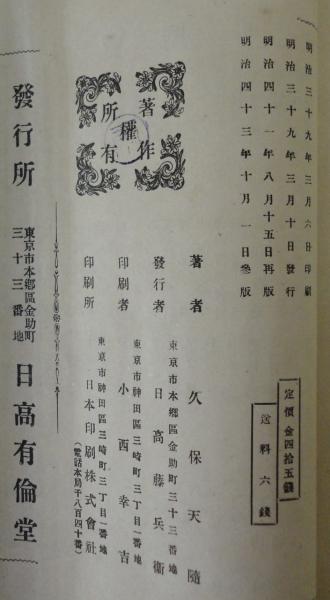 明治三十九年三月六日印刷
明治三十九年三月十日發行
明治四十一年八月十五日再版
明治四十三年十月一日參版
定價金四拾五錢
送料六錢
著作權所有
著者 久保天隨
東京市本鄉區金助町三十三番地
發行者 日高藤兵衞
東京市神田區三崎町三丁目一番地
印刷者 小西幸吉
東京市神田區三崎町三丁目一番地
印刷所 日本印刷株式會社
(電話本局千八百四十番)
發行所 東京市本鄉區金助町三十三番地 日高有倫堂